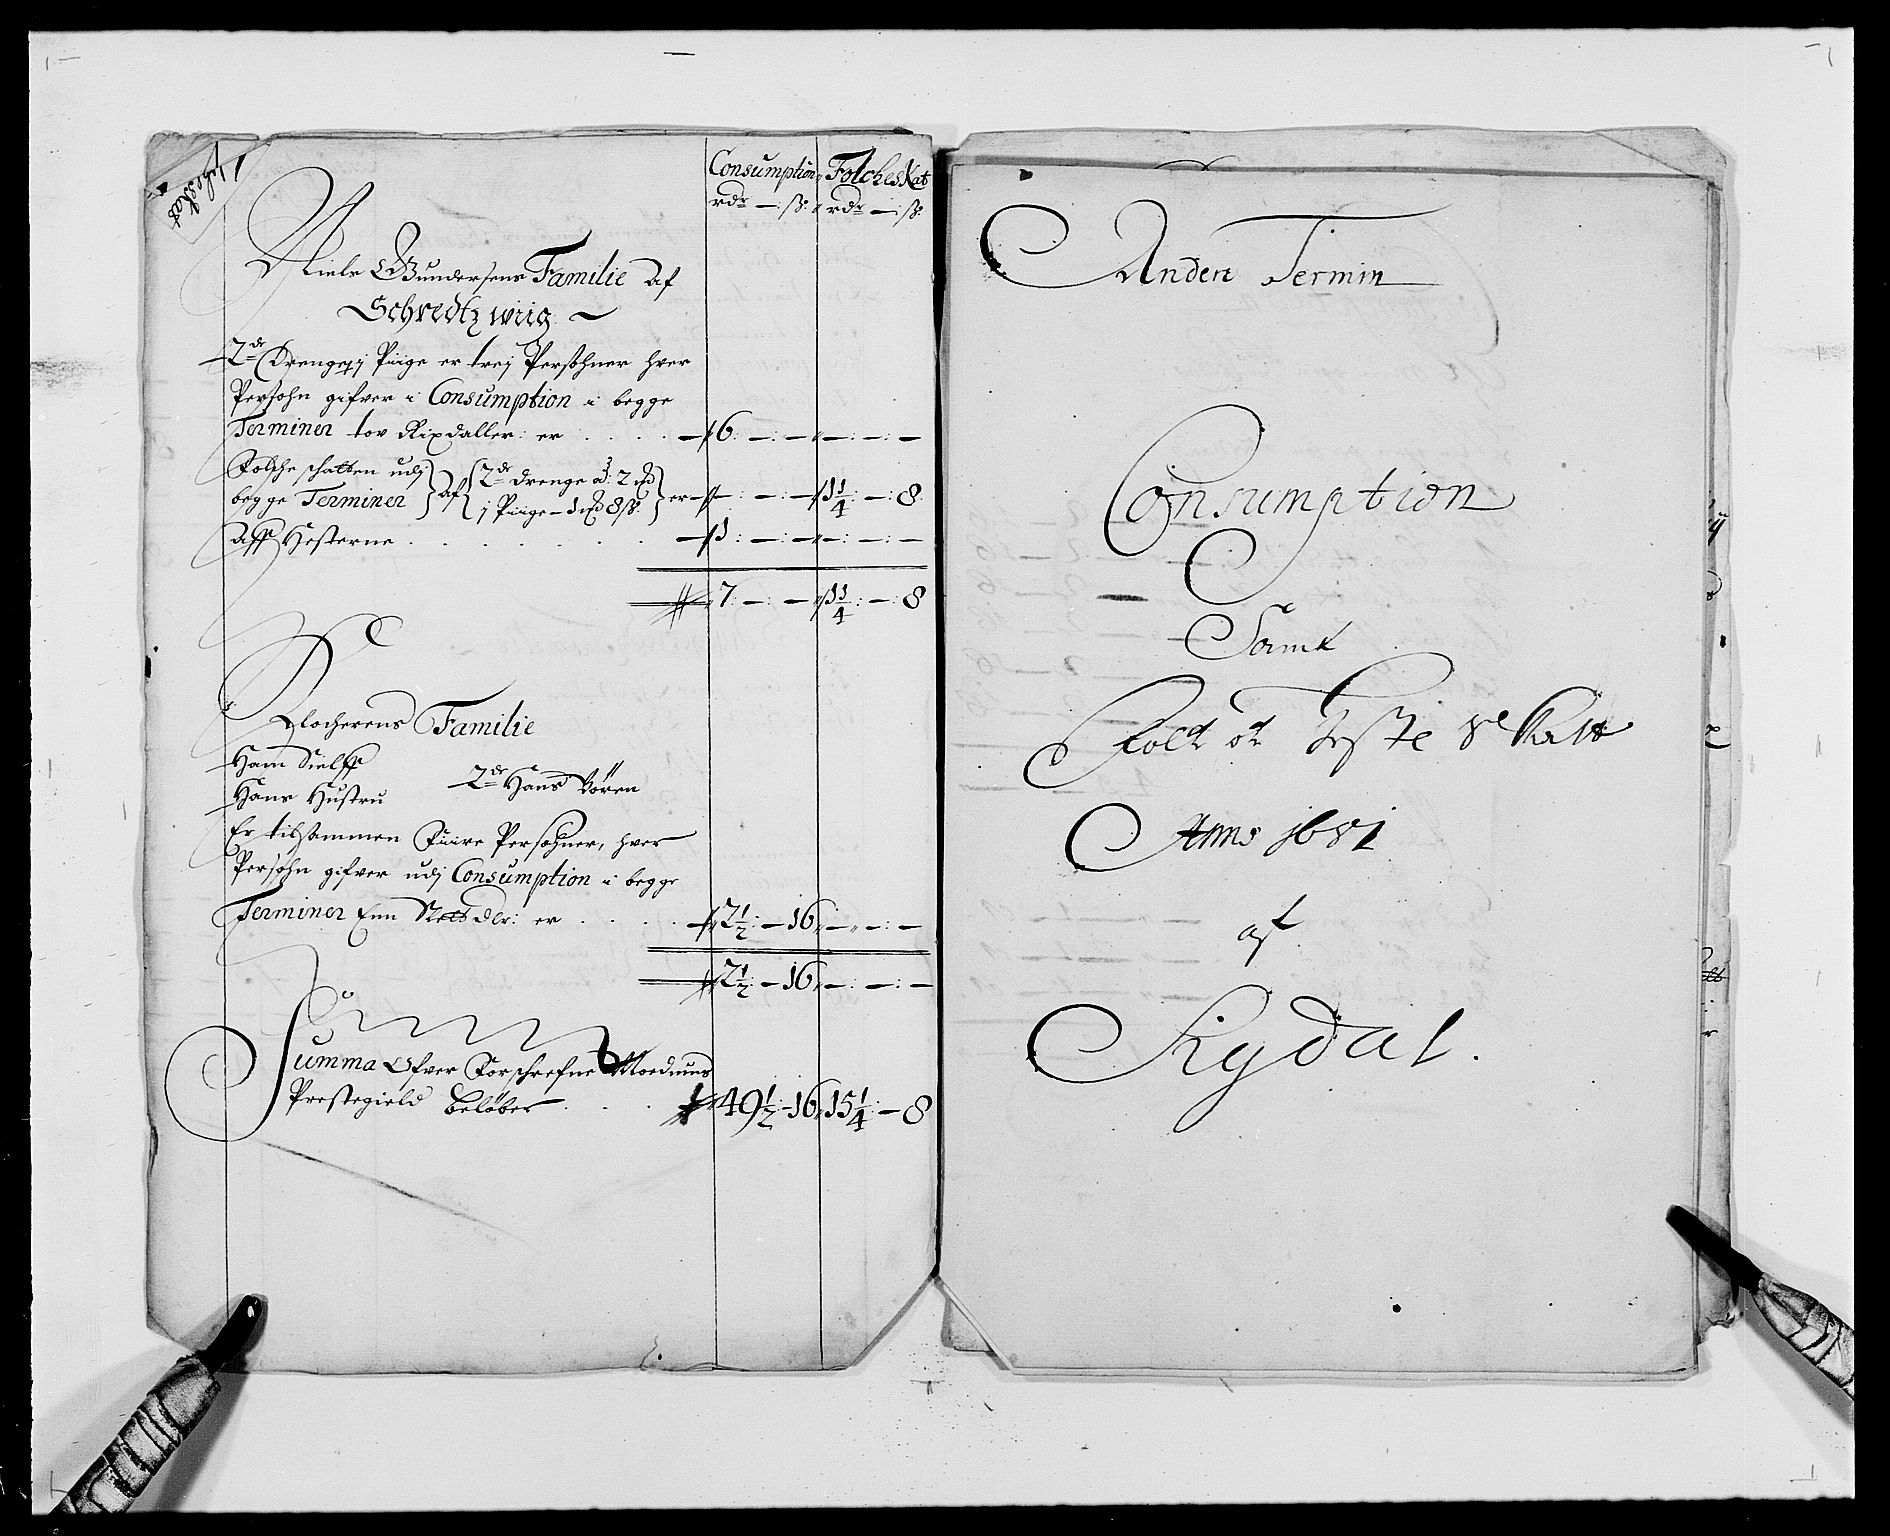 Consumption FolchesKat
rdr — ß. rdr — ß.
Niels Gundersens Familie af
Schredtzwiig
2de Drenge, j Piige er trej Persohner hver
Persohn gifver i Consumption i begge
Terminer tov Rixdaller: er . . . . — 6: —: — —: —: —
Folche schatten udj begge Terminer af 2de Drenge a: 2 rd j Piige — 1 rd 8 ß. er — —: —: — 11/4: —: 8
Aff Hesterne . . . . . . — 1: —: — —: —: —
7: —: — 11/4: —: 8
Klocherens Familie
Ham Sielff
Hans Hustru 2de Hans Børen
Er tilsammen Fiire Persohner, hver
Persohn gifver udj Consumption i begge
Terminer Enn Slett dlr: er . . . . 2 1/2: — 16 — —: —
2 1/2: — 16 —: —: —
Summa Ofver Forschrefne Moedums
Prestegield beløber . . . . 49 1/2: — 16 15 1/4: — 8
Anden Termin
Consumption
Samt
Folck oc Heste Skatt
Anno 1681
af
Rydal.